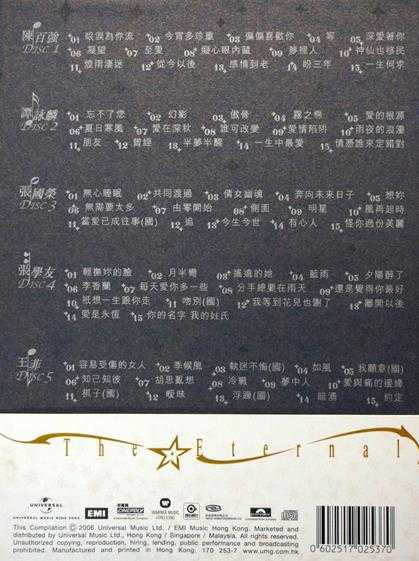 陳百強 DISC 1
01 眼淚為你流 02 今宵多珍重 03 偏偏喜歡你 04 等 05 深愛著你
06 凝望 07 至愛 08 癡心眼內藏 09 夢裡人 10 神仙也移民
11 煙雨淒迷 12 從今以後 13 感情到老 14 盼三年 15 一生何求
譚詠麟 DISC 2
01 忘不了您 02 幻影 03 傲骨 04 霧之戀 05 愛的根源
06 夏日寒風 07 愛在深秋 08 誰可改變 09 愛情陷阱 10 雨夜的浪漫
11 朋友 12 曾經 13 半夢半醒 14 一生中最愛 15 情憑誰來定錯對
張國榮 DISC 3
01 無心睡眠 02 共同渡過 03 倩女幽魂 04 奔向未來日子 05 想妳
06 無需要太多 07 由零開始 08 側面 09 明星 10 風再起時
11 當愛已成往事(國) 12 追 13 今生今世 14 有心人 15 怪你過份美麗
張學友 DISC 4
01 輕撫妳的臉 02 月半彎 03 遙遠的她 04 藍雨 05 夕陽醉了
06 李香蘭 07 每天愛你多一些 08 分手總要在雨天 09 還是覺得你最好
10 衹想一生跟你走 11 吻別(國) 12 我等到花兒也謝了 13 離開以後
14 愛是永恆 15 你的名字 我的姓氏
王菲 DISC 5
01 容易受傷的女人 02 季候風 03 執迷不悔(國) 04 如風 05 我願意(國)
06 知己知彼 07 胡思亂想 08 冷戰 09 夢中人 10 愛與痛的邊緣
11 棋子(國) 12 曖昧 13 浮躁(國) 14 暗湧 15 約定
The Eternal
UNIVERSAL
UNIVERSAL MUSIC HONG KONG
EMI
CINEPOLY
WARNER MUSIC
HONG KONG
This Compilation ℗ 2006 Universal Music Ltd. / EMI Music Hong Kong. Marketed and
distributed by Universal Music Ltd., Hong Kong / Singapore / Malaysia. All rights reserved.
Unauthorized copying, reproduction, hiring, lending, public performance and broadcasting
prohibited. Manufactured and printed in Hong Kong. 170 253-7 www.umg.com.hk
0 602517 025370